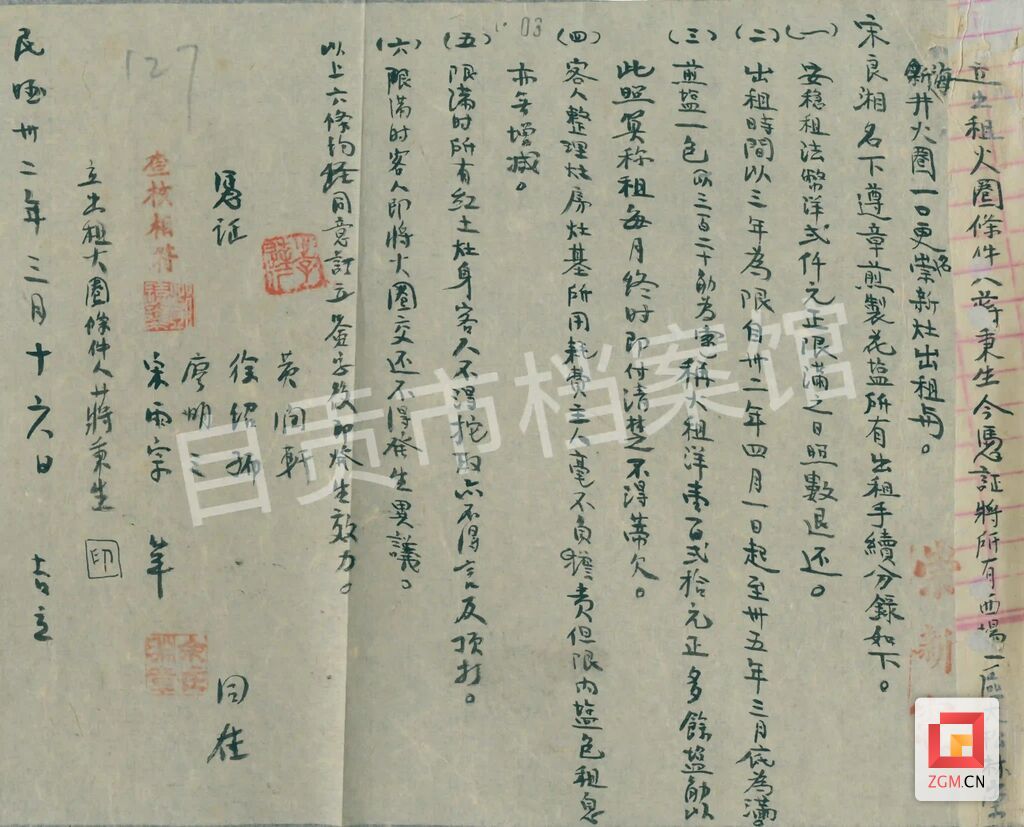 立出租火圈條件人蔣秉生今憑証將所有西場一區
海新井火圈一口更名崇新灶出租与。
宋良湘名下遵章煎製花塩所有出租手續分錄如下。
(一) 安穏租法幣洋弍仟元正限滿之日照數退还。
(二) 出租時間以三年為限自卅二年四月一日起至卅五年三月底為滿。
(三) 煎塩一色以三百二十觔為定稱火租洋壹百弍拾元正多餘塩觔以
此照算称租每月終时即付清楚不得蒂欠。
(四) 客人整理灶房灶基所用耗費主人毫不負擔責但限內塩色租息
亦無增減。
(五) 限滿时所有紅土灶身客人不得挖取亦不得言及頂打。
(六) 限滿时客人即將火圈交还不得發生異議。
以上六條均経同意訂立簽字後即發生效力。
憑証
黃润軒
徐紹
廖明之
宋雨宗
筆
同在
查核相符
立出租火圈條件人蔣秉生
印
民国卅二年三月十六日 吉立
127
03
崇新
自贡市档案馆
ZGM.CN